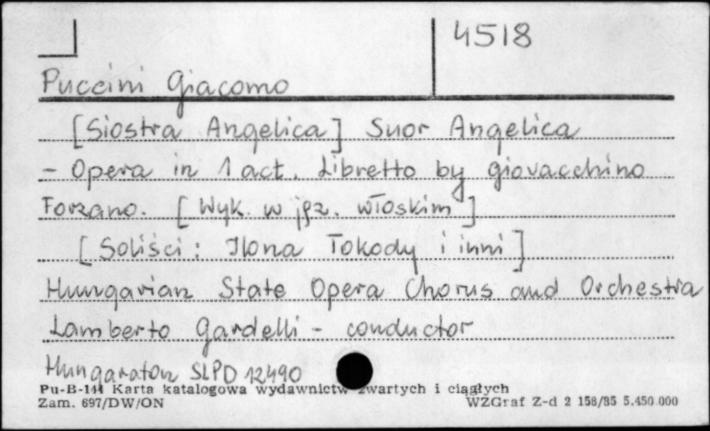 4518
Puccini Giacomo
[Siostra Angelica] Suor Angelica
- Opera in 1 act. Libretto by Giovacchino
Forzano. [Wyk. w jęz. włoskim]
[Soliści: Ilona Tokody i inni]
Hungarian State Opera Chorus and Orchestra
Lamberto Gardelli - conductor
Hungaroton SLPD 12490
Pu-B-144 Karta katalogowa wydawnictw zwartych i ciągłych
Zam. 697/DW/ON WZGraf Z-d 2 158/85 5.450.000